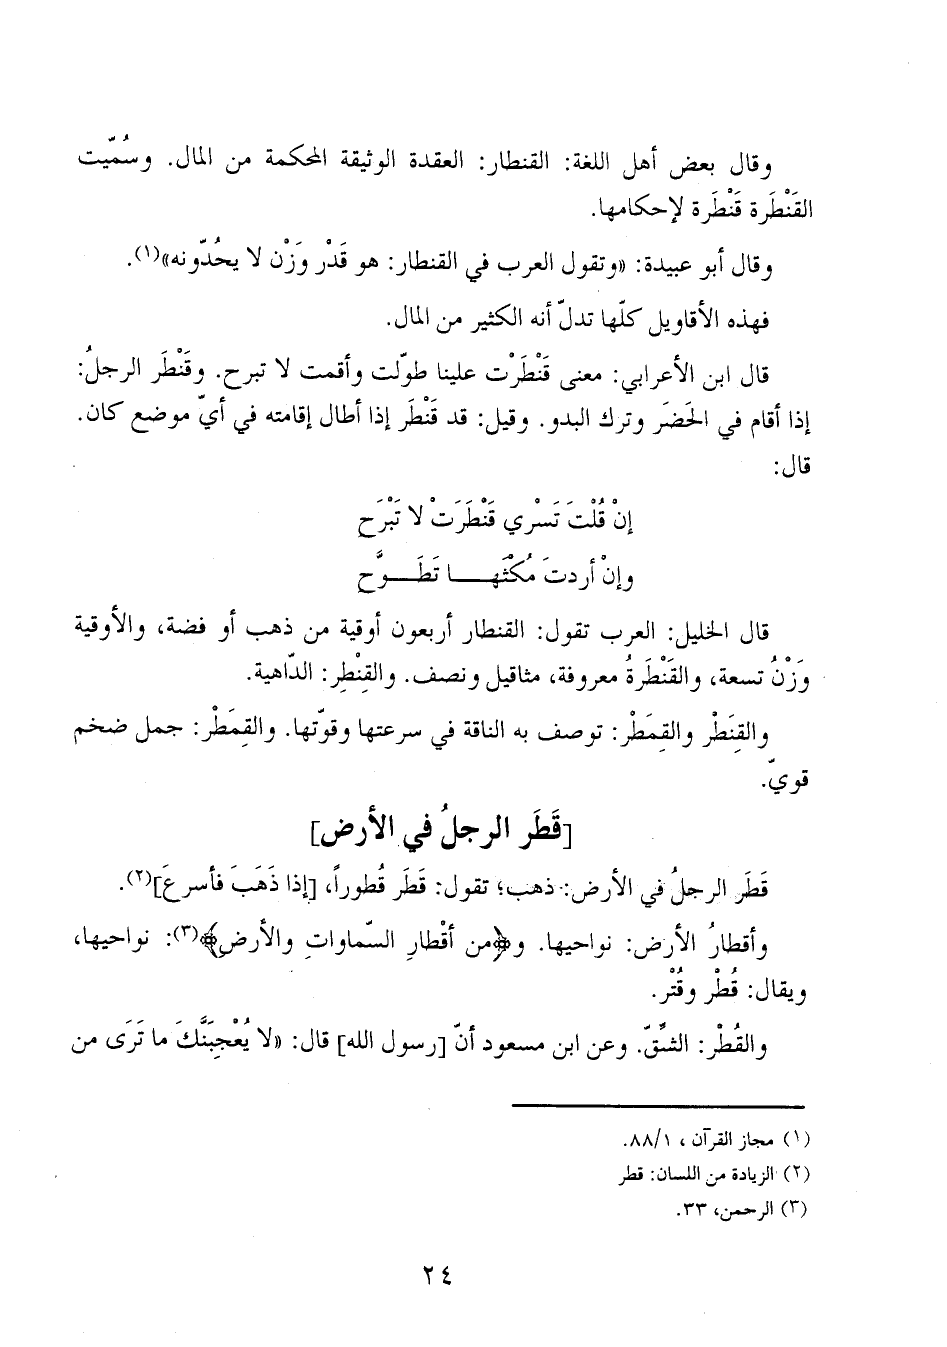 وقال بعض أهل اللغة: القنطار: العقدة الوثيقة المحكمة من المال. وسُمّيت
القَنْطَرة قَنْطَرة لإحكامها.
وقال أبو عبيدة: «وتقول العرب في القنطار: هو قَدْر وَزْن لا يحُدّونه»(١).
فهذه الأقاويل كلّها تدلّ أنه الكثير من المال.
قال ابن الأعرابي: معنى قَنْطَرْت علينا طوّلت وأقمت لا تبرح. وقَنْطَر الرجلُ:
إذا أقام في الحَضَر وترك البدو. وقيل: قد قَنْطَر إذا أطال إقامته في أيّ موضع كان.
قال:
إنْ قُلْتَ تَسْري قَنْطَرَتْ لا تَبْرَح
وإنْ أردتَ مُكْثَهــا تَطَــوَّح
قال الخليل: العرب تقول: القنطار أربعون أوقية من ذهب أو فضة، والأوقية
وَزْنُ تسعة، والقَنْطَرةُ معروفة، مثاقيل ونصف. والقِنْطِر: الدّاهية.
والقِنَطْر والقِمَطْر: توصف به الناقة في سرعتها وقوّتها. والقِمَطْر: جمل ضخم
قويّ.
[قَطَر الرجلُ في الأرض]
قَطَر الرجلُ في الأرض: ذهب؛ تقول: قَطَر قُطوراً، [إذا ذَهَبَ فأسرعَ](٢).
وأقطارُ الأرض: نواحيها. و﴿من أقْطارِ السّماواتِ والأرضِ﴾(٣): نواحيها،
ويقال: قُطْر وقُتْر.
والقُطْر: الشِّقّ. وعن ابن مسعود أنّ [رسول الله] قال: «لا يُعْجِبَنَّكَ ما تَرَى من
(١) مجاز القرآن ، ٨٨/١.
(٢) الزيادة من اللسان: قطر
(٣) الرحمن، ٣٣.
٢٤